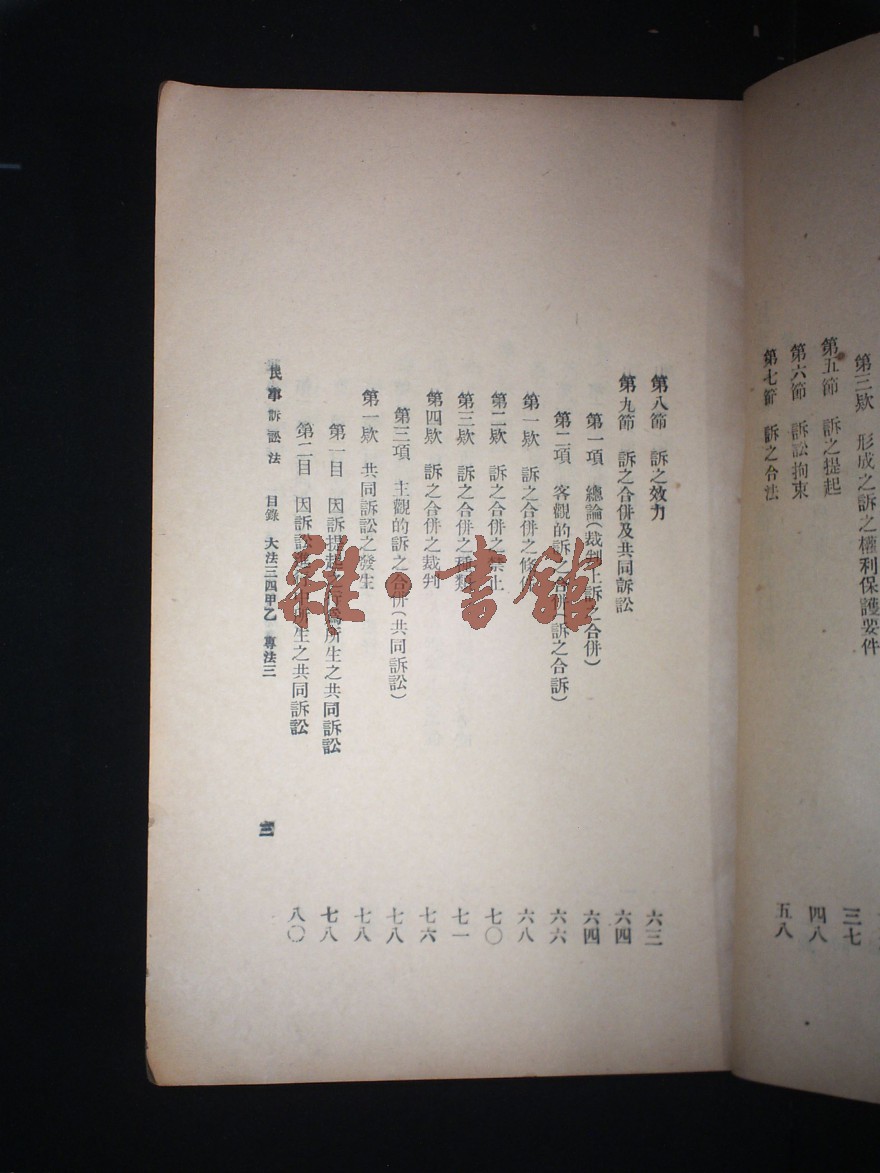 第三欵　形成之訴之權利保護要件
第五節　訴之提起　三七
第六節　訴訟拘束　四八
第七節　訴之合法　五八
第八節　訴之效力　六三
第九節　訴之合併及共同訴訟　六四
第一項　總論(裁判上訴之合併)　六四
第二項　客觀的訴之合併(訴之合訴)　六六
第一欵　訴之合併之條件　六八
第二欵　訴之合併之禁止　七〇
第三欵　訴之合併之種類　七一
第四欵　訴之合併之裁判　七六
第三項　主觀的訴之合併(共同訴訟)　七八
第一欵　共同訴訟之發生　七八
第一目　因訴提起之所生之共同訴訟　七八
第二目　因訴訟所生之共同訴訟　八〇
民事訴訟法　目錄　大法三四甲乙　專法三　三
雜·書館